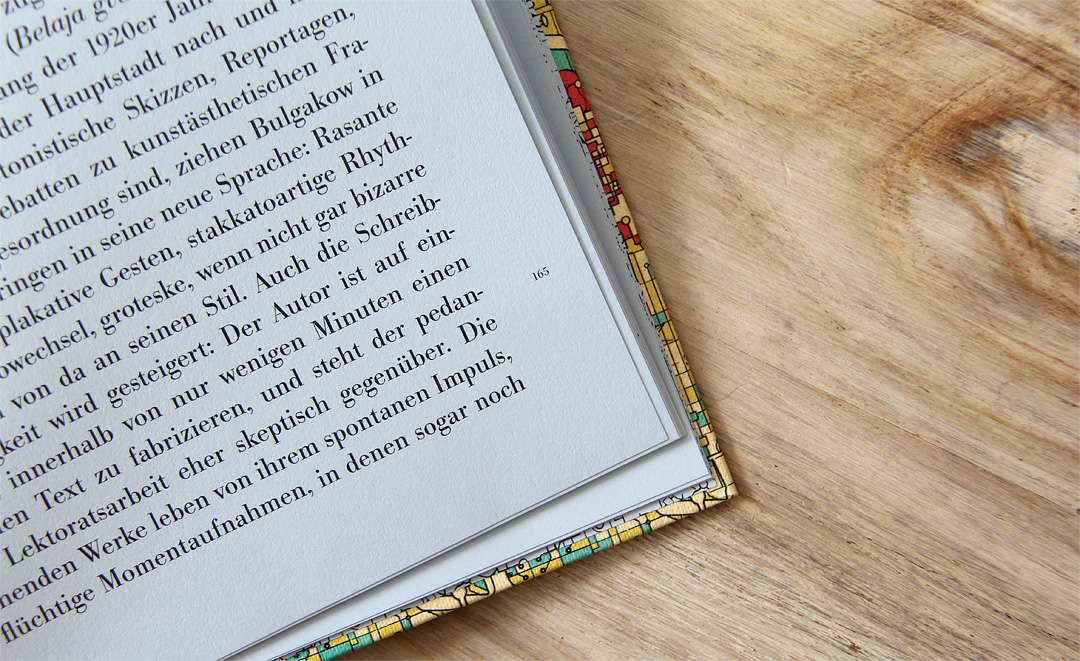 (Belaja
der 1920er
der Hauptstadt nach und
Skizzen, Reportagen,
zu kunstästhetischen Fra-
sind, ziehen Bulgakow in
in seine neue Sprache: Rasante
plakative Gesten, stakkatoartige Rhyth-
groteske, wenn nicht gar bizarre
von da an seinen Stil. Auch die Schreib-
wird gesteigert: Der Autor ist auf ein-
innerhalb von nur wenigen Minuten einen
Text zu fabrizieren, und steht der pedan-
Lektoratsarbeit eher skeptisch gegenüber. Die
Werke leben von ihrem spontanen Impuls,
flüchtige Momentaufnahmen, in denen sogar noch
165